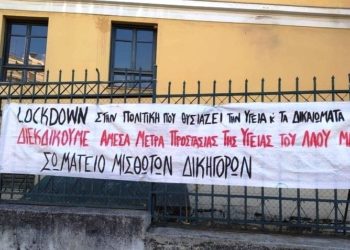 LOCKDOWN ΣΤΗΝ ΠΟΛΙΤΙΚΗ ΠΟΥ ΘΥΣΙΑΖΕΙ ΤΗΝ ΥΓΕΙΑ Κ' ΤΑ ΔΙΚΑΙΩΜΑΤΑ
ΔΙΕΚΔΙΚΟΥΜΕ ΑΜΕΣΑ ΜΕΤΡΑ ΠΡΟΣΤΑΣΙΑΣ ΤΗΣ ΥΓΕΙΑΣ ΤΟΥ ΛΑΟΥ Μ
ΣΩΜΑΤΕΙΟ ΜΙΣΘΩΤΩΝ ΔΙΚΗΓΟΡΩΝ